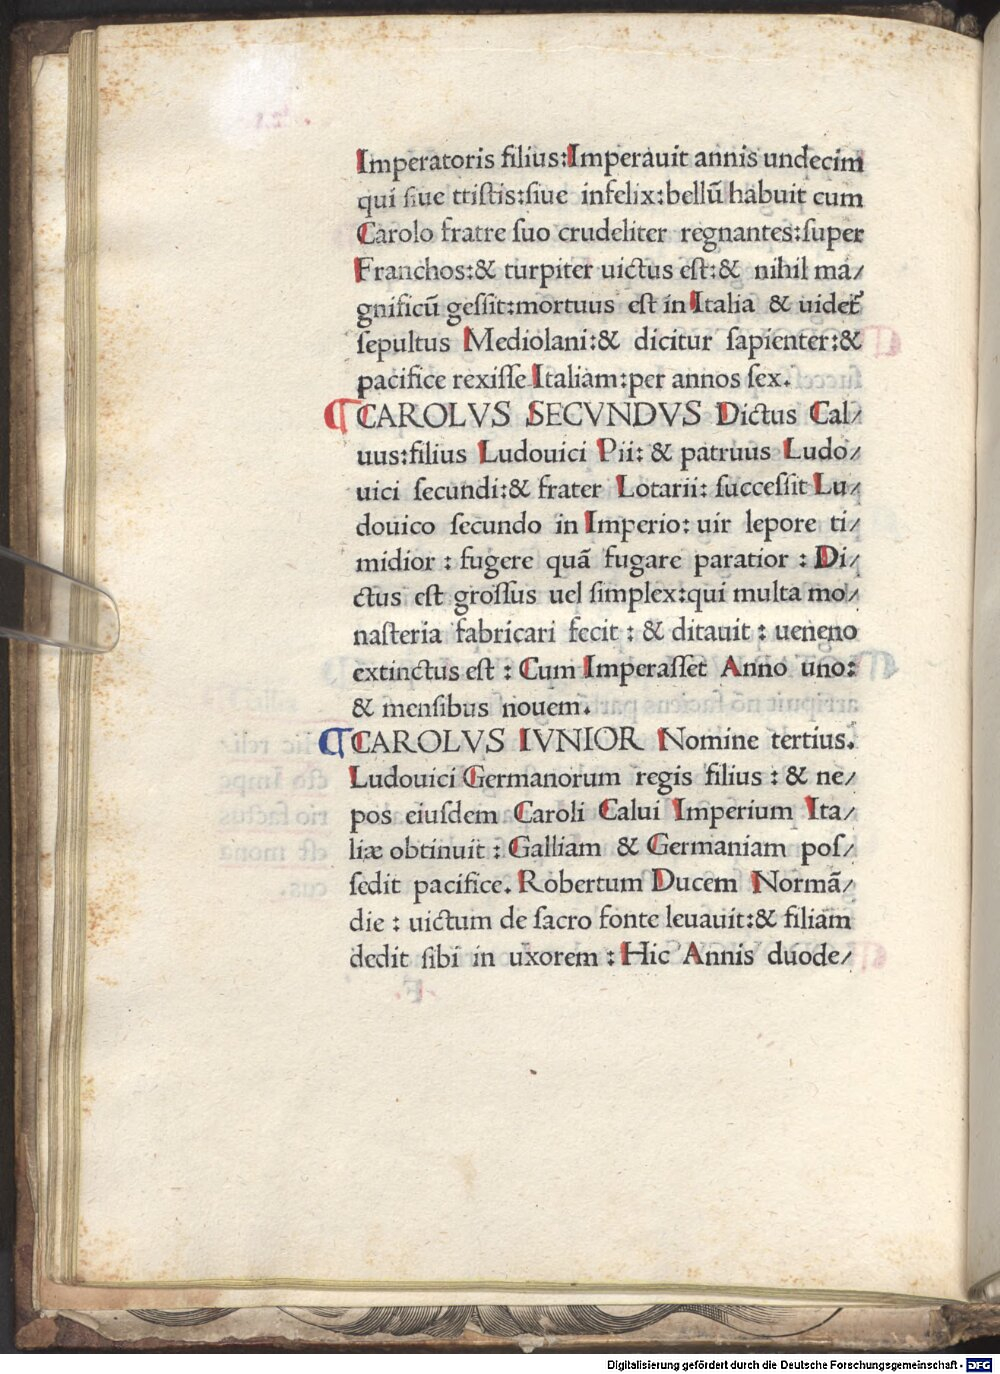 Imperatoris filius:Imperauit annis undecim
qui siue tristis:siue infelix:bellū habuit cum
Carolo fratre suo crudeliter regnantes:super
Franchos:& turpiter uictus est:& nihil ma/
gnificū gessit:mortuus est in Italia & uidet᷑
sepultus Mediolani:& dicitur sapienter:&
pacifice rexisse Italiam:per annos sex.
¶CAROLVS SECVNDVS Dictus Cal/
uus:filius Ludouici Pii: & patruus Ludo/
uici secundi:& frater Lotarii: successit Lu/
douico secundo in Imperio: uir lepore ti/
midior : fugere quā fugare paratior : Di/
ctus est grossus uel simplex:qui multa mo/
nasteria fabricari fecit : & ditauit : ueneno
extinctus est : Cum Imperasset Anno uno:
& mensibus nouem.
¶CAROLVS IVNIOR Nomine tertius.
Ludouici Germanorum regis filius : & ne/
pos eiusdem Caroli Calui Imperium Ita/
liæ obtinuit : Galliam & Germaniam pos/
sedit pacifice. Robertum Ducem Normā/
die : uictum de sacro fonte leuauit:& filiam
dedit sibi in uxorem : Hic Annis duode/
Digitalisierung gefördert durch die Deutsche Forschungsgemeinschaft - DFG